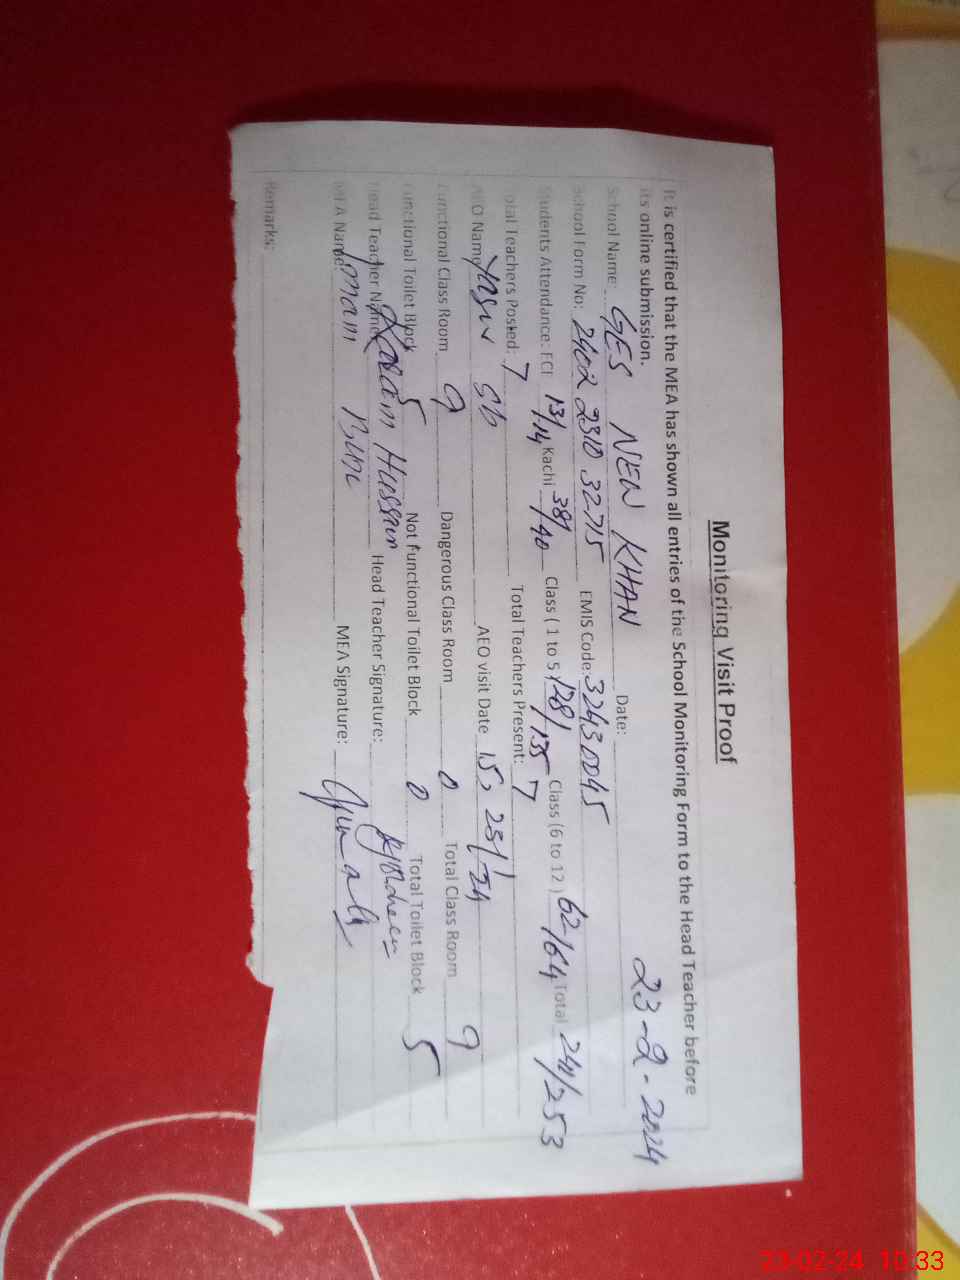 Monitoring Visit Proof
It is certified that the MEA has shown all entries of the School Monitoring Form to the Head Teacher before
its online submission.
School Name: GES NEW KHAN Date: 23-2-2024
School Form No: 2402 2310 32715 EMIS Code: 32430045
Students Attendance: ECE 13/14 Kachi 38/40 Class ( 1 to 5 ) 128/135 Class (6 to 12 ) 62/64 Total 241/253
Total Teachers Posted: 7 Total Teachers Present: 7
AEO Name AEO visit Date
Functional Class Room 9 Dangerous Class Room 0 Total Class Room 9
Functional Toilet Block 5 Not Functional Toilet Block 0 Total Toilet Block 5
Head Teacher Name Karam Hussain Head Teacher Signature:
MEA Name: Imam MEA Signature:
Remarks:
23-02-24 10:33